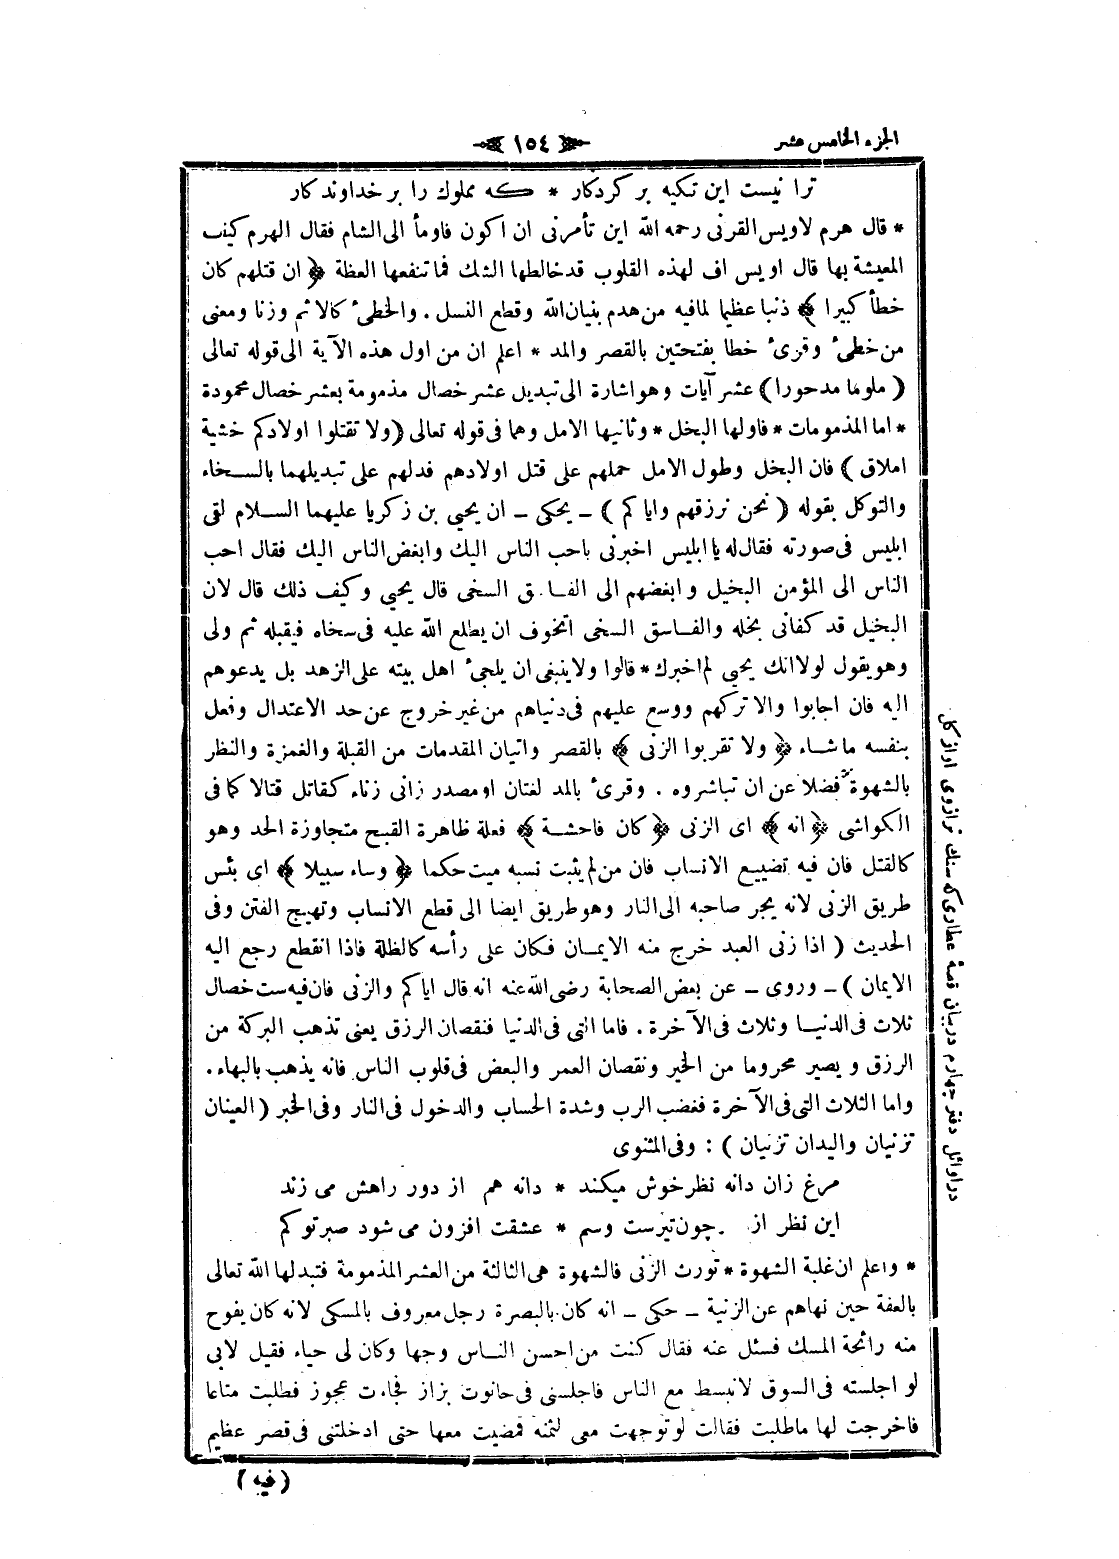 الجزء الخامس عشر
١٥٤
ترا نيست اين تكيه بر كردكار * كه مملوك را بر خداوندكار
* قال هرم لاويس القرنى رحمه الله اين تأمرنى ان اكون فاومأ الى الشام فقال الهرم كيف
المعيشة بها قال اويس اف لهذه القلوب قد خالطها الشك فما تنفعها العظة ﴿ ان قتلهم كان
خطأ كبيرا ﴾ ذنبا عظيما لما فيه من هدم بنيان الله وقطع النسل . والخطئ كالاثم وزنا ومعنى
من خطئ وقرئ خطا بفتحتين بالقصر والمد * اعلم ان من اول هذه الآية الى قوله تعالى
( ملوما مدحورا ) عشر آيات وهو اشارة الى تبديل عشر خصال مذمومة بعشر خصال محمودة
* اما المذمومات * فاولها البخل * وثانيها الامل وهما فى قوله تعالى ( ولا تقتلوا اولادكم خشية
املاق ) فان البخل وطول الامل حملهم على قتل اولادهم فدلهم على تبديلهما بالسخاء
والتوكل بقوله ( نحن نرزقهم واياكم ) ـ يحكى ـ ان يحيى بن زكريا عليهما السلام لقى
ابليس فى صورته فقال له يا ابليس اخبرنى باحب الناس اليك وابغض الناس اليك فقال احب
الناس الى المؤمن البخيل وابغضهم الى الفاسق السخى قال يحيى وكيف ذلك قال لان
البخيل قد كفانى بخله والفاسق السخى اتخوف ان يطلع الله عليه فى سخاه فيقبله ثم ولى
وهو يقول لولا انك يحيى لم اخبرك * قالوا ولا ينبغى ان يلجئ اهل بيته على الزهد بل يدعوهم
اليه فان اجابوا والا تركهم ووسع عليهم فى دنياهم من غير خروج عن حد الاعتدال وفعل
بنفسه ما شاء ﴿ ولا تقربوا الزنى ﴾ بالقصر واتيان المقدمات من القبلة والغمزة والنظر
بالشهوة فضلا عن ان تباشروه . وقرئ بالمد لغتان او مصدر زانى زناء كقاتل قتالا كما فى
الكواشى ﴿ انه ﴾ اى الزنى ﴿ كان فاحشة ﴾ فعلة ظاهرة القبح متجاوزة الحد وهو
كالقتل فان فيه تضييع الانساب فان من لم يثبت نسبه ميت حكما ﴿ وساء سبيلا ﴾ اى بئس
طريق الزنى لانه يجر صاحبه الى النار وهو طريق ايضا الى قطع الانساب وتهييج الفتن وفى
الحديث ( اذا زنى العبد خرج منه الايمان فكان على رأسه كالظلة فاذا انقطع رجع اليه
الايمان ) ـ وروى ـ عن بعض الصحابة رضى الله عنه انه قال اياكم والزنى فان فيه ست خصال
ثلاث فى الدنيا وثلاث فى الآخرة . فاما التى فى الدنيا فنقصان الرزق يعنى تذهب البركة من
الرزق ويصير محروما من الخير ونقصان العمر والبغض فى قلوب الناس فانه يذهب بالبهاء .
واما الثلاث التى فى الآخرة فغضب الرب وشدة الحساب والدخول فى النار وفى الخبر ( العينان
تزنيان واليدان تزنيان ) : وفى المثنوى
مرغ زان دانه نظر خوش ميكند * دانه هم از دور راهش مى زند
اين نظر از چون تيرست وسم * عشقت افزون مى شود صبر تو كم
* واعلم ان غلبة الشهوة * تورث الزنى فالشهوة هى الثالثة من العشر المذمومة فتبدلها الله تعالى
بالعفة حين نهاهم عن الزنية ـ حكى ـ انه كان بالبصرة رجل معروف بالمسكى لانه كان يفوح
منه رائحة المسك فسئل عنه فقال كنت من احسن الناس وجها وكان لى حياء فقيل لابى
لو اجلسته فى السوق لانبسط مع الناس فاجلسنى فى حانوت بزاز فجاءت عجوز فطلبت متاعا
فاخرجت لها ما طلبت فقالت لو توجهت معى لثمنه فمضيت معها حتى ادخلتنى فى قصر عظيم
( فيه )
در اوائل دفتر چهارم دربيان قصهٔ عطارى كه سنك ترازوى او از كل